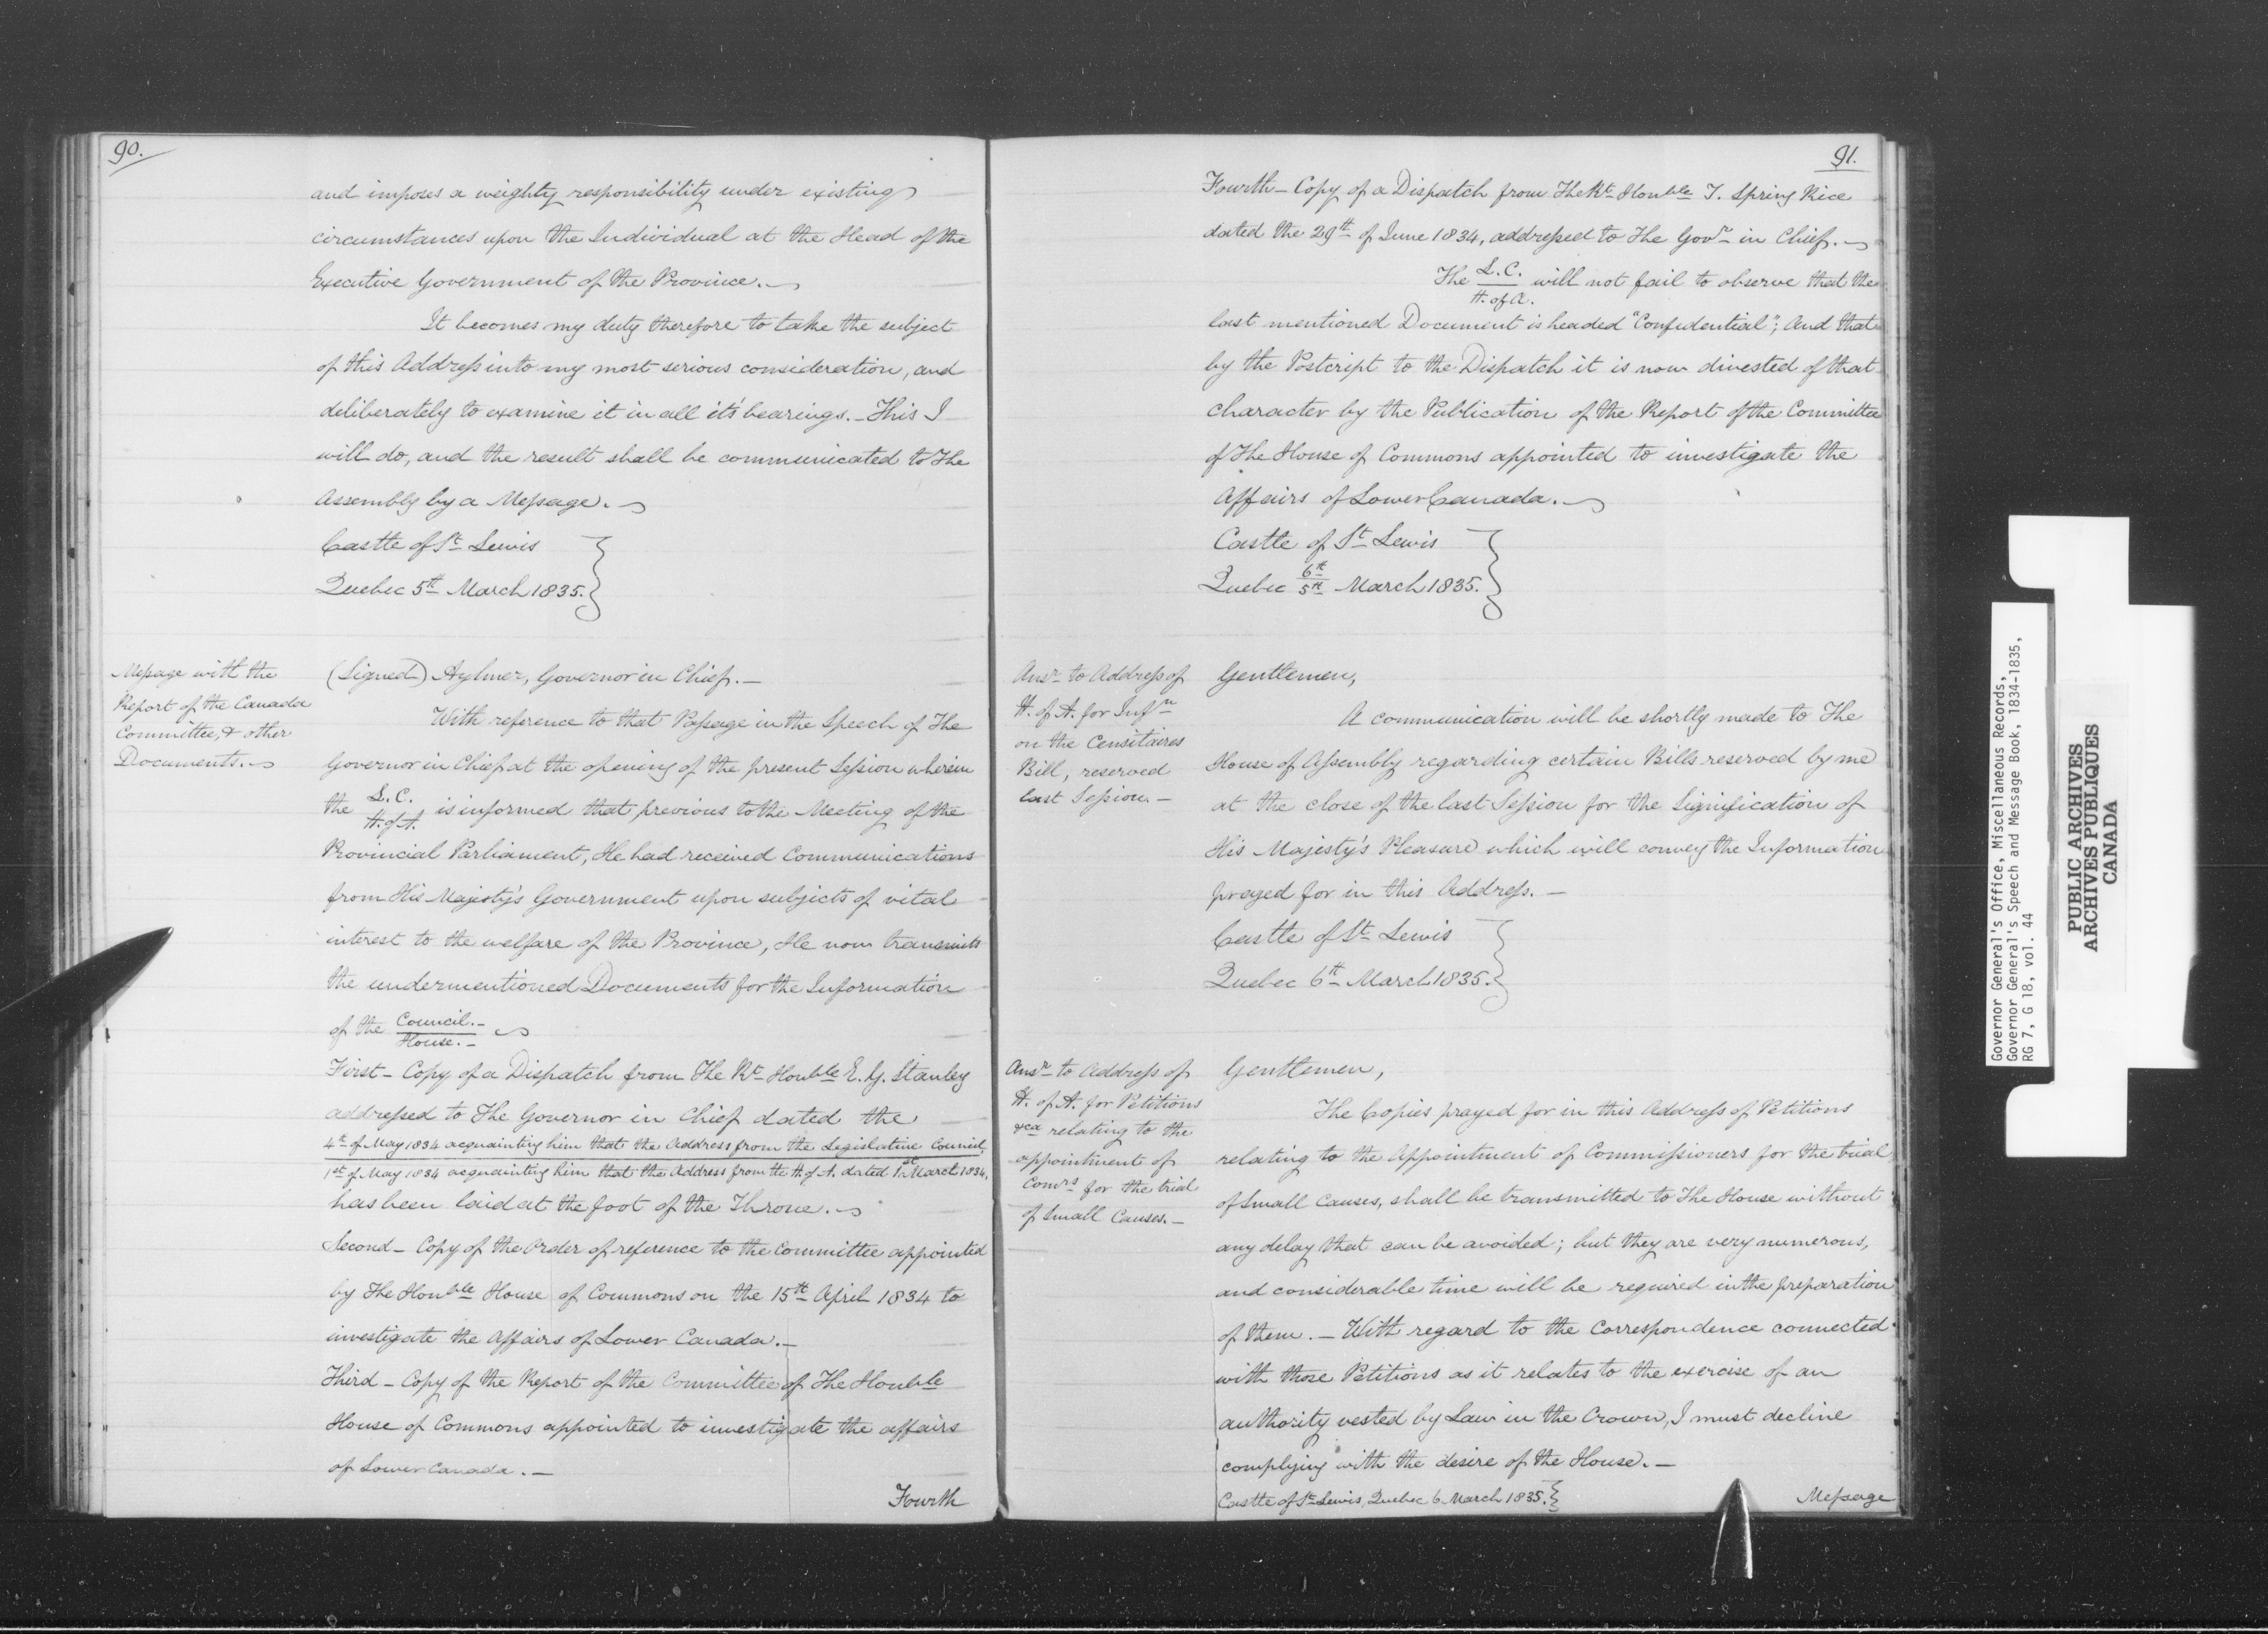 90.
and imposes a weighty responsibility under existing
circumstances upon the Individual at the Head of the
Executive Government of the Province.
It becomes my duty therefore to take the subject
of this Address into my most serious consideration, and
deliberately to examine it in all its' bearings. - This I
will do, and the result shall be communicated to The
Assembly by a Message.
Castle of St Lewis
Quebec 5th March 1835.
Message with the
Report of the Canada
Committee, & other
Documents.
(Signed) Aylmer, Governor in Chief. -
With reference to that Passage in the Speech of The
Governor in Chief at the opening of the present Session wherein
the L.C. / H. of A. is informed that previous to the Meeting of the
Provincial Parliament, He had received Communications
from His Majesty's Government upon subjects of vital
interest to the welfare of the Province, He now transmits
the undermentioned Documents for the Information
of the Council. - / House. -
First - Copy of a Dispatch from The Rt Honble E. G. Stanley
addressed to The Governor in Chief dated the
4th of May 1834 acquainting him that the Address from the Legislative Council,
1st of May 1834 acquainting him that the Address from the H. of A. dated 1st March 1834,
has been laid at the foot of the Throne.
Second - Copy of the Order of reference to the Committee appointed
by The Honble House of Commons on the 15th April 1834 to
investigate the Affairs of Lower Canada. -
Third - Copy of the Report of the Committee of The Honble
House of Commons appointed to investigate the affairs
of Lower Canada. -
Fourth
91.
Fourth - Copy of a Dispatch from The Rt Honble T. Spring Rice
dated the 29th of June 1834, addressed to The Govr in Chief. -
The L.C. / H. of A. will not fail to observe that the
last mentioned Document is headed "Confidential"; And that
by the Postcript to the Dispatch it is now divested of that
character by the Publication of the Report of the Committee
of The House of Commons appointed to investigate the
Affairs of Lower Canada.
Castle of St Lewis
Quebec 6th / 5th March 1835.
Ansr to Address of
H. of A. for Infn
on the Censitaires
Bill, reserved
last Session. -
Gentlemen,
A communication will be shortly made to The
House of Assembly regarding certain Bills reserved by me
at the close of the last Session for the Signification of
His Majesty's Pleasure which will convey the Information
prayed for in this Address. -
Castle of St Lewis
Quebec 6th March 1835.
Ansr to Address of
H. of A. for Petitions
&ca relating to the
appointment of
Comrs for the trial
of Small Causes. -
Gentlemen,
The Copies prayed for in this Address of Petitions
relating to the Appointment of Commissioners for the trial
of Small Causes, shall be transmitted to The House without
any delay that can be avoided; but they are very numerous,
and considerable time will be required in the preparation
of them. - With regard to the Correspondence connected
with those Petitions as it relates to the exercise of an
authority vested by Law in the Crown, I must decline
complying with the desire of the House. -
Castle of St Lewis, Quebec 6 March 1835.
Message
Governor General's Office, Miscellaneous Records,
Governor General's Speech and Message Book, 1834-1835,
RG 7, G 18, vol. 44
PUBLIC ARCHIVES
ARCHIVES PUBLIQUES
CANADA